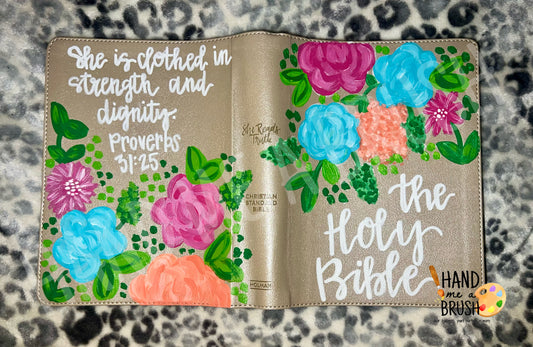 She is clothed in
strength and
dignity.
Proverbs
31:25
She Reads
Truth
CHRISTIAN
STANDARD
BIBLE
HOLMAN
the
Holy
Bible
HAND
me a
BRUSH